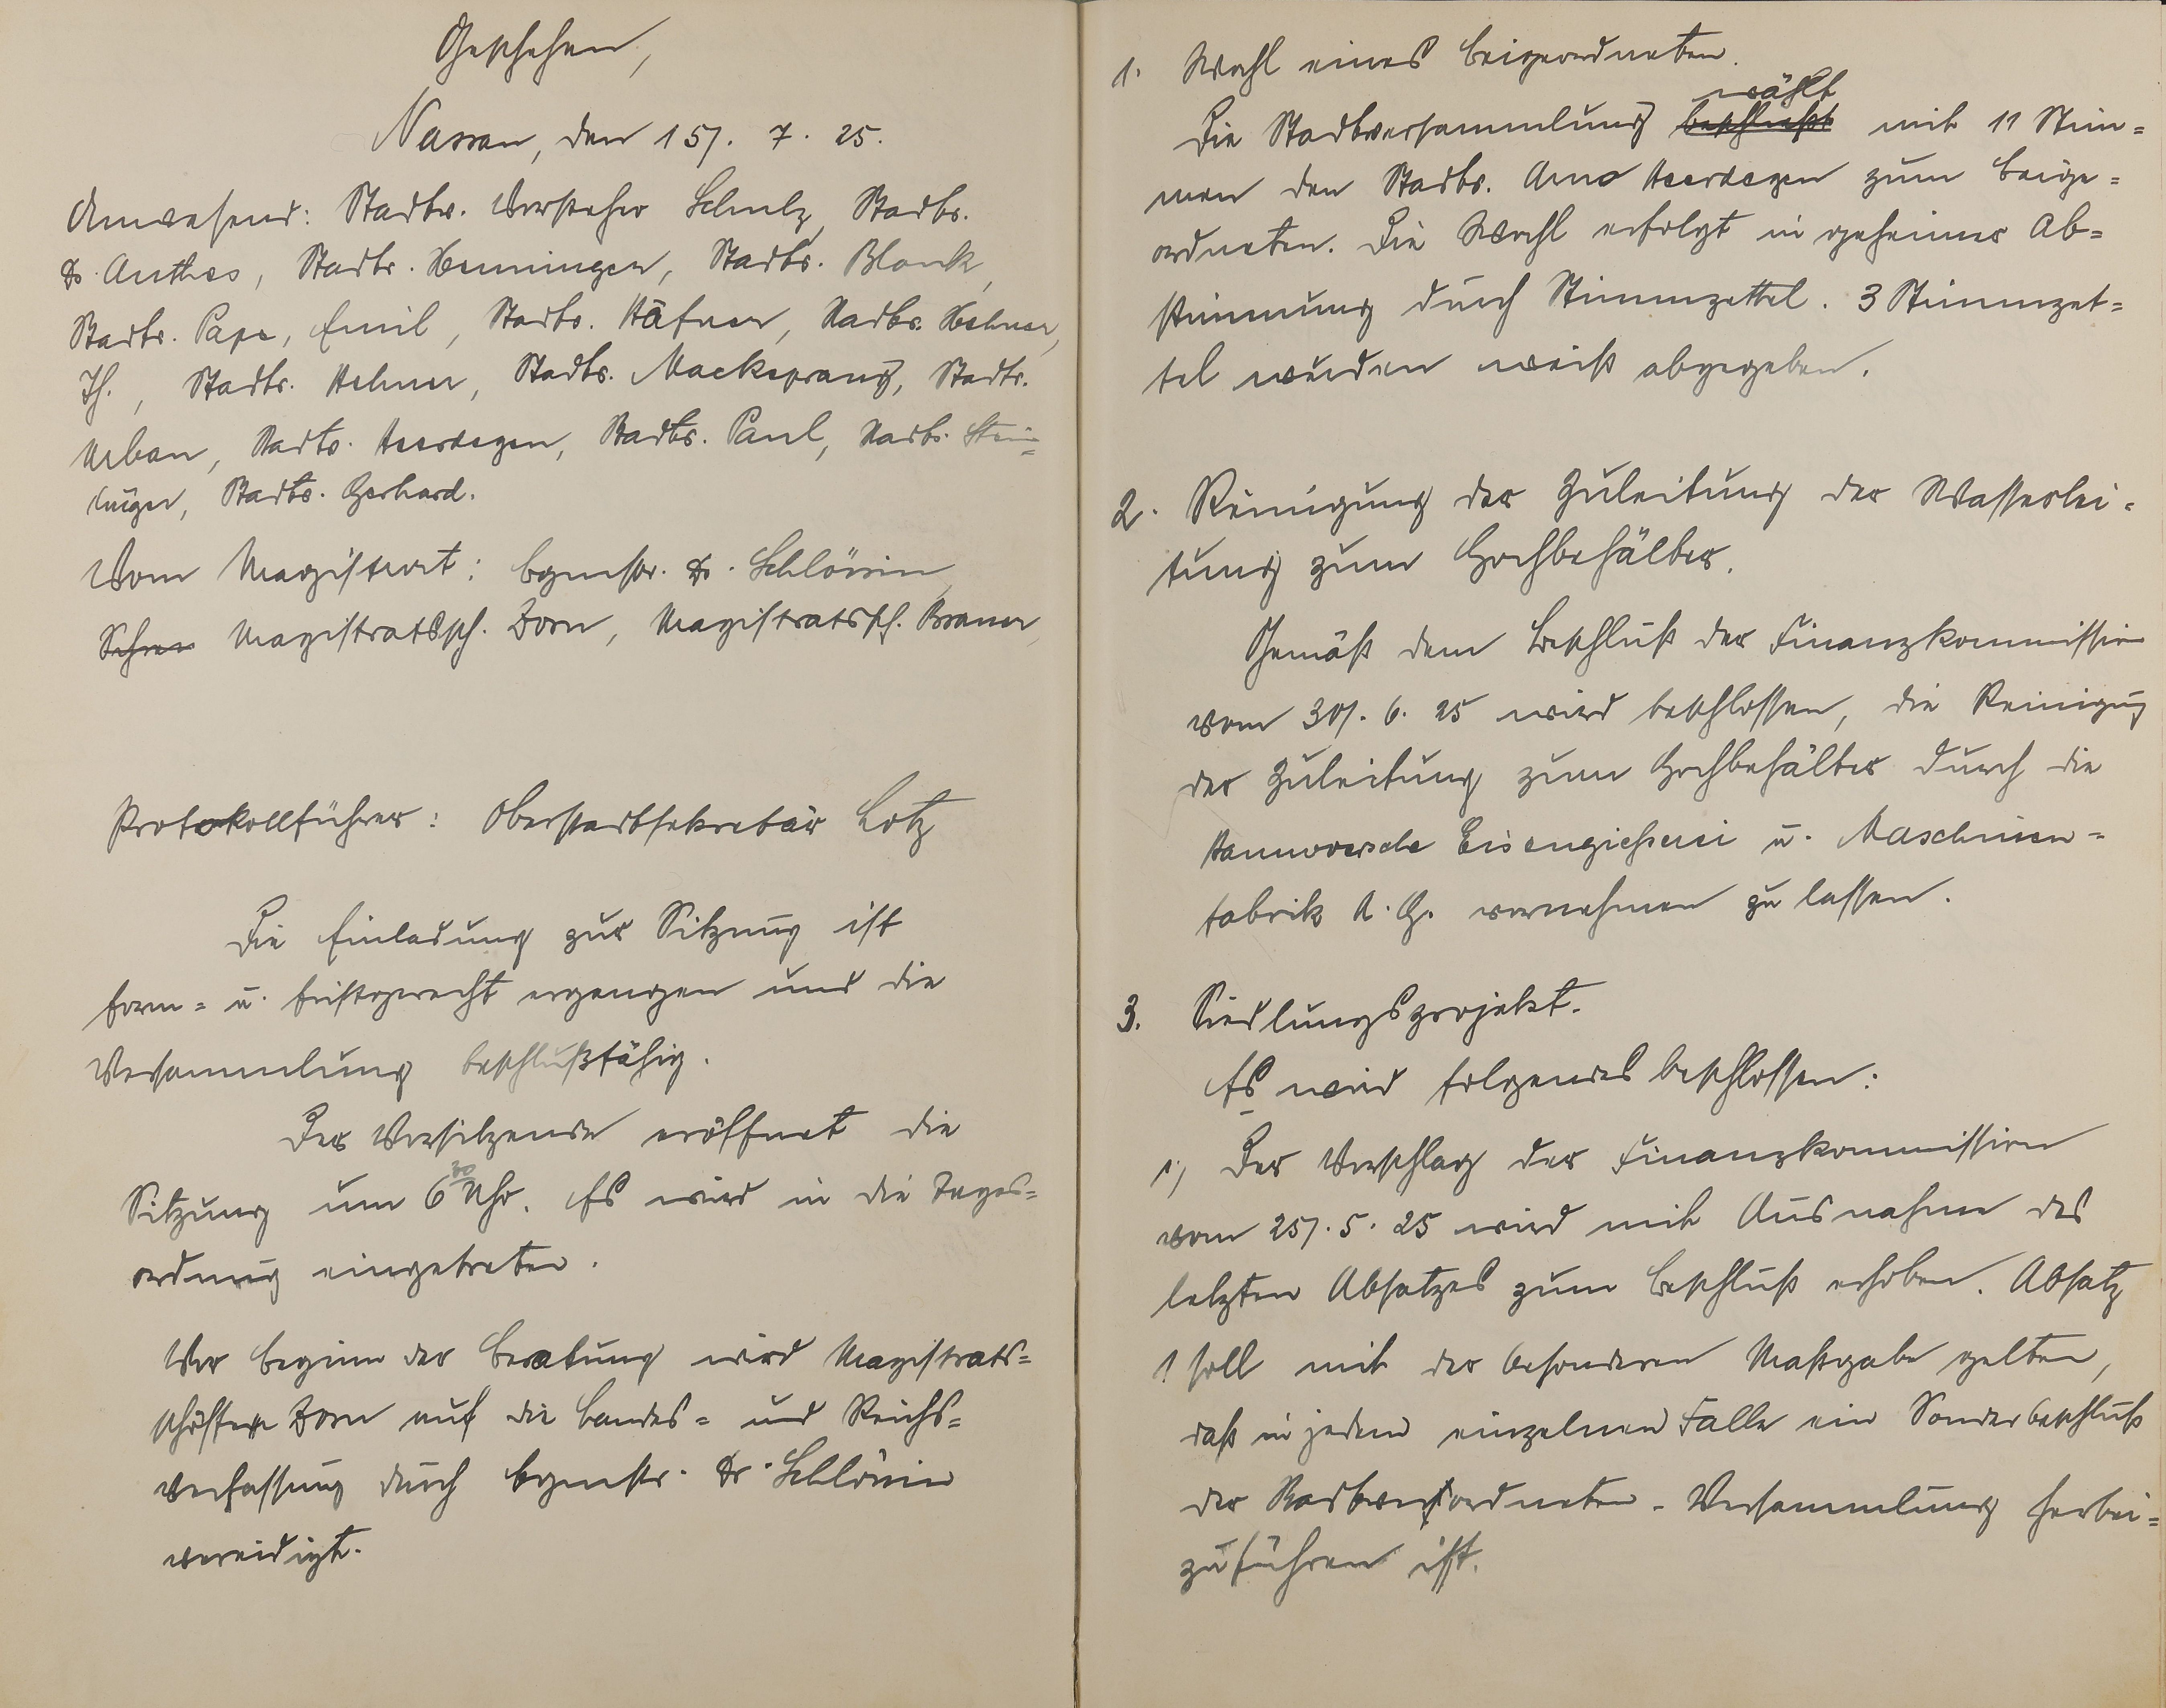 Geschehen,
Nassau, den 15/. 7. 25.
Anwesend: Stadtv. Vorsteher Schulz, Stadtv.
Dr. Anthes, Stadtv. Henningen, Stadtv. Blank,
Stadtv. Pape, Emil, Stadtv. Häfner, Stadtv. Hehner,
Th., Stadtv. Hehner, Stadtv. Mackeprang, Stadtv.
Urban, Stadtv. Heerdegen, Stadtv. Paul, Stadtv. Stein=
Stadtv. Gerhard.
Vom Magistrat: Bgmstr. Dr. Schlösin,
Magistratssch. Zorn, Magistratssch. Braun,
Protokollführer: Oberstadtsekretär Lotz
Die Einladung zur Sitzung ist
form= u. fristgerecht ergangen und die
Versammlung beschlußfähig.
Der Vorsitzende eröffnet die
Sitzung um 6 30 Uhr. Es wird in die Tages=
ordnung eingetreten.
Vor Beginn der Beratung wird Magistrats=
schöffen Zorn auf die Landes= und Reichs=
verfassung durch Bgmstr. Dr. Schlösin
vereidigt.
1. Wahl eines Beigeordneten.
wählt
Die Stadtversammlung beschließt mit 11 Stim=
men den Stadtv. Arno Heerdegen zum Beige=
ordneten. Die Wahl erfolgt in geheimer Ab=
stimmung durch Stimmzettel. 3 Stimmzet=
tel wurden weiß abgegeben.
2. Reinigung der Zuleitung der Wasserlei=
tung zum Hochbehälter.
Gemäß dem Beschluß der Finanzkommission
vom 30/. 6. 25 wird beschlossen, die Reinigung
der Zuleitung zum Hochbehälter durch die
Hannoversche Eisengießerei u. Maschinen=
fabrik A. G. vornehmen zu lassen.
3. Siedlungsprojekt.
Es wird folgendes beschlossen:
1) Der Vorschlag der Finanzkommission
vom 25/. 5. 25 wird mit Ausnahme des
letzten Absatzes zum Beschluß erhoben. Absatz
1 soll mit der besonderen Maßgabe gelten,
daß in jedem einzelnen Falle ein Sonderbeschluß
der Stadtverordneten-Versammlung herbei=
zuführen ist.